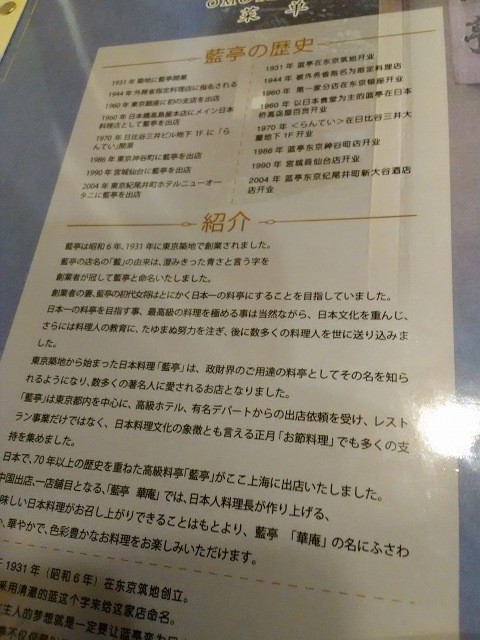 菜单
藍亭の歴史
1931年 築地に藍亭開業
1944年 外務省指定料理店に指名される
1960年 東京銀座に初の支店を出店
1960年 日本橋高島屋本店にメイン日本
料理店として藍亭を出店
1970年 日比谷三井ビル地下1Fに「ら
んてい」開業
1986年 東京神谷町に藍亭を出店
1990年 宮城仙台に藍亭を出店
2004年 東京紀尾井町ホテルニューオー
タニに藍亭を出店
1931年 蓝亭在东京筑地开业
1944年 被外务省指名为指定料理店
1960年 第一家分店在东京银座开业
1960年 以日本贵宾为主的蓝亭在日本
桥高店屋百货开业
1970年 <らんてい>在日比谷三井大
厦地下1F开业
1986年 蓝亭东京神谷町店开业
1990年 宮城县仙台店开业
2004年 蓝亭东京纪尾井町新大谷酒店
店开业
紹介
藍亭は昭和6年、1931年に東京築地で創業されました。
藍亭の店名の「藍」の由来は、澄みきった青さと言う字を
創業者が冠して藍亭と命名いたしました。
創業者の妻、藍亭の初代女将はとにかく日本一の料亭にすることを目指していました。
日本一の料亭を目指す事、最高級の料理を極める事は当然ながら、日本文化を重んじ、
さらには料理人の教育に、たゆまぬ努力を注ぎ、後に数多くの料理人を世に送り込みま
した。
東京築地から始まった日本料理「藍亭」は、政財界のご用達の料亭としてその名を知ら
れるようになり、数多くの著名人に愛されるお店となりました。
「藍亭」は東京都内を中心に、高級ホテル、有名デパートからの出店依頼を受け、レスト
ラン事業だけではなく、日本料理文化の象徴とも言える正月「お節料理」でも多くの支
持を集めました。
日本で、70年以上の歴史を重ねた高級料亭「藍亭」がここ上海に出店いたしました。
中国出店、一店舗目となる、「藍亭 華庵」では、日本人料理長が作り上げる、
味しい日本料理がお召し上がりできることはもとより、藍亭 「華庵」の名にふさわ
、華やかで、色彩豊かなお料理をお楽しみいただけます。
1931年(昭和6年)在东京筑地创立。
采用清澈的蓝这个字来给这家店命名。
主人的梦想就是一定要让蓝亭